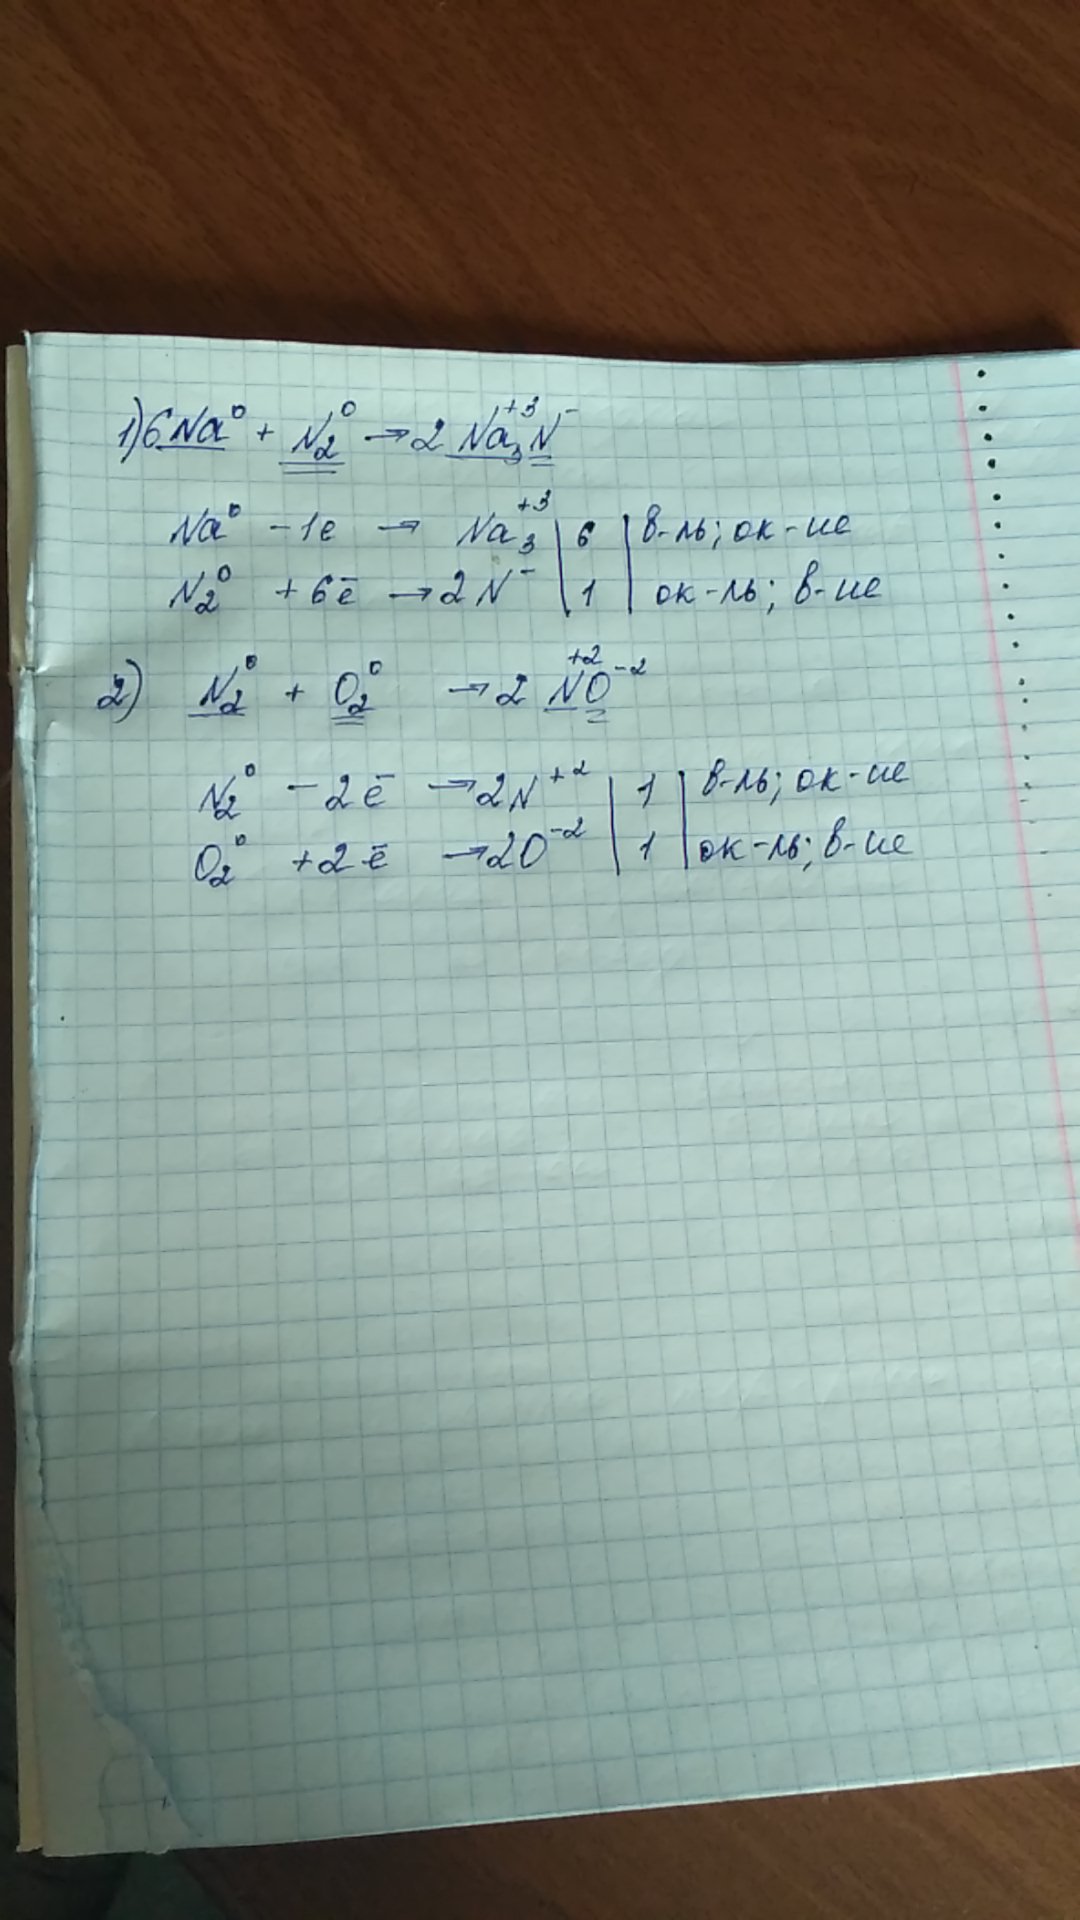 1) 6Na⁰ + N₂⁰ → 2 Na₃⁺³N⁻
Na⁰ - 1e → Na₃⁺³ | 6 | в-ль; ок-ие
N₂⁰ + 6ē → 2N⁻ | 1 | ок-ль; в-ие
2) N₂⁰ + O₂⁰ → 2 N⁺²O⁻²
N₂⁰ - 2ē → 2N⁺² | 1 | в-ль; ок-ие
O₂⁰ + 2ē → 2O⁻² | 1 | ок-ль; в-ие